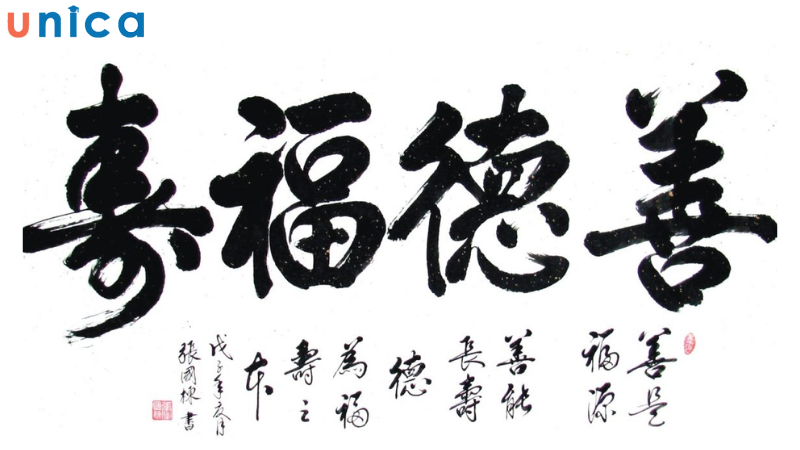 unica
善德福寿
善是
福源
善能
長壽
德
為福
壽之
本
戊子年夏月
張國棟書